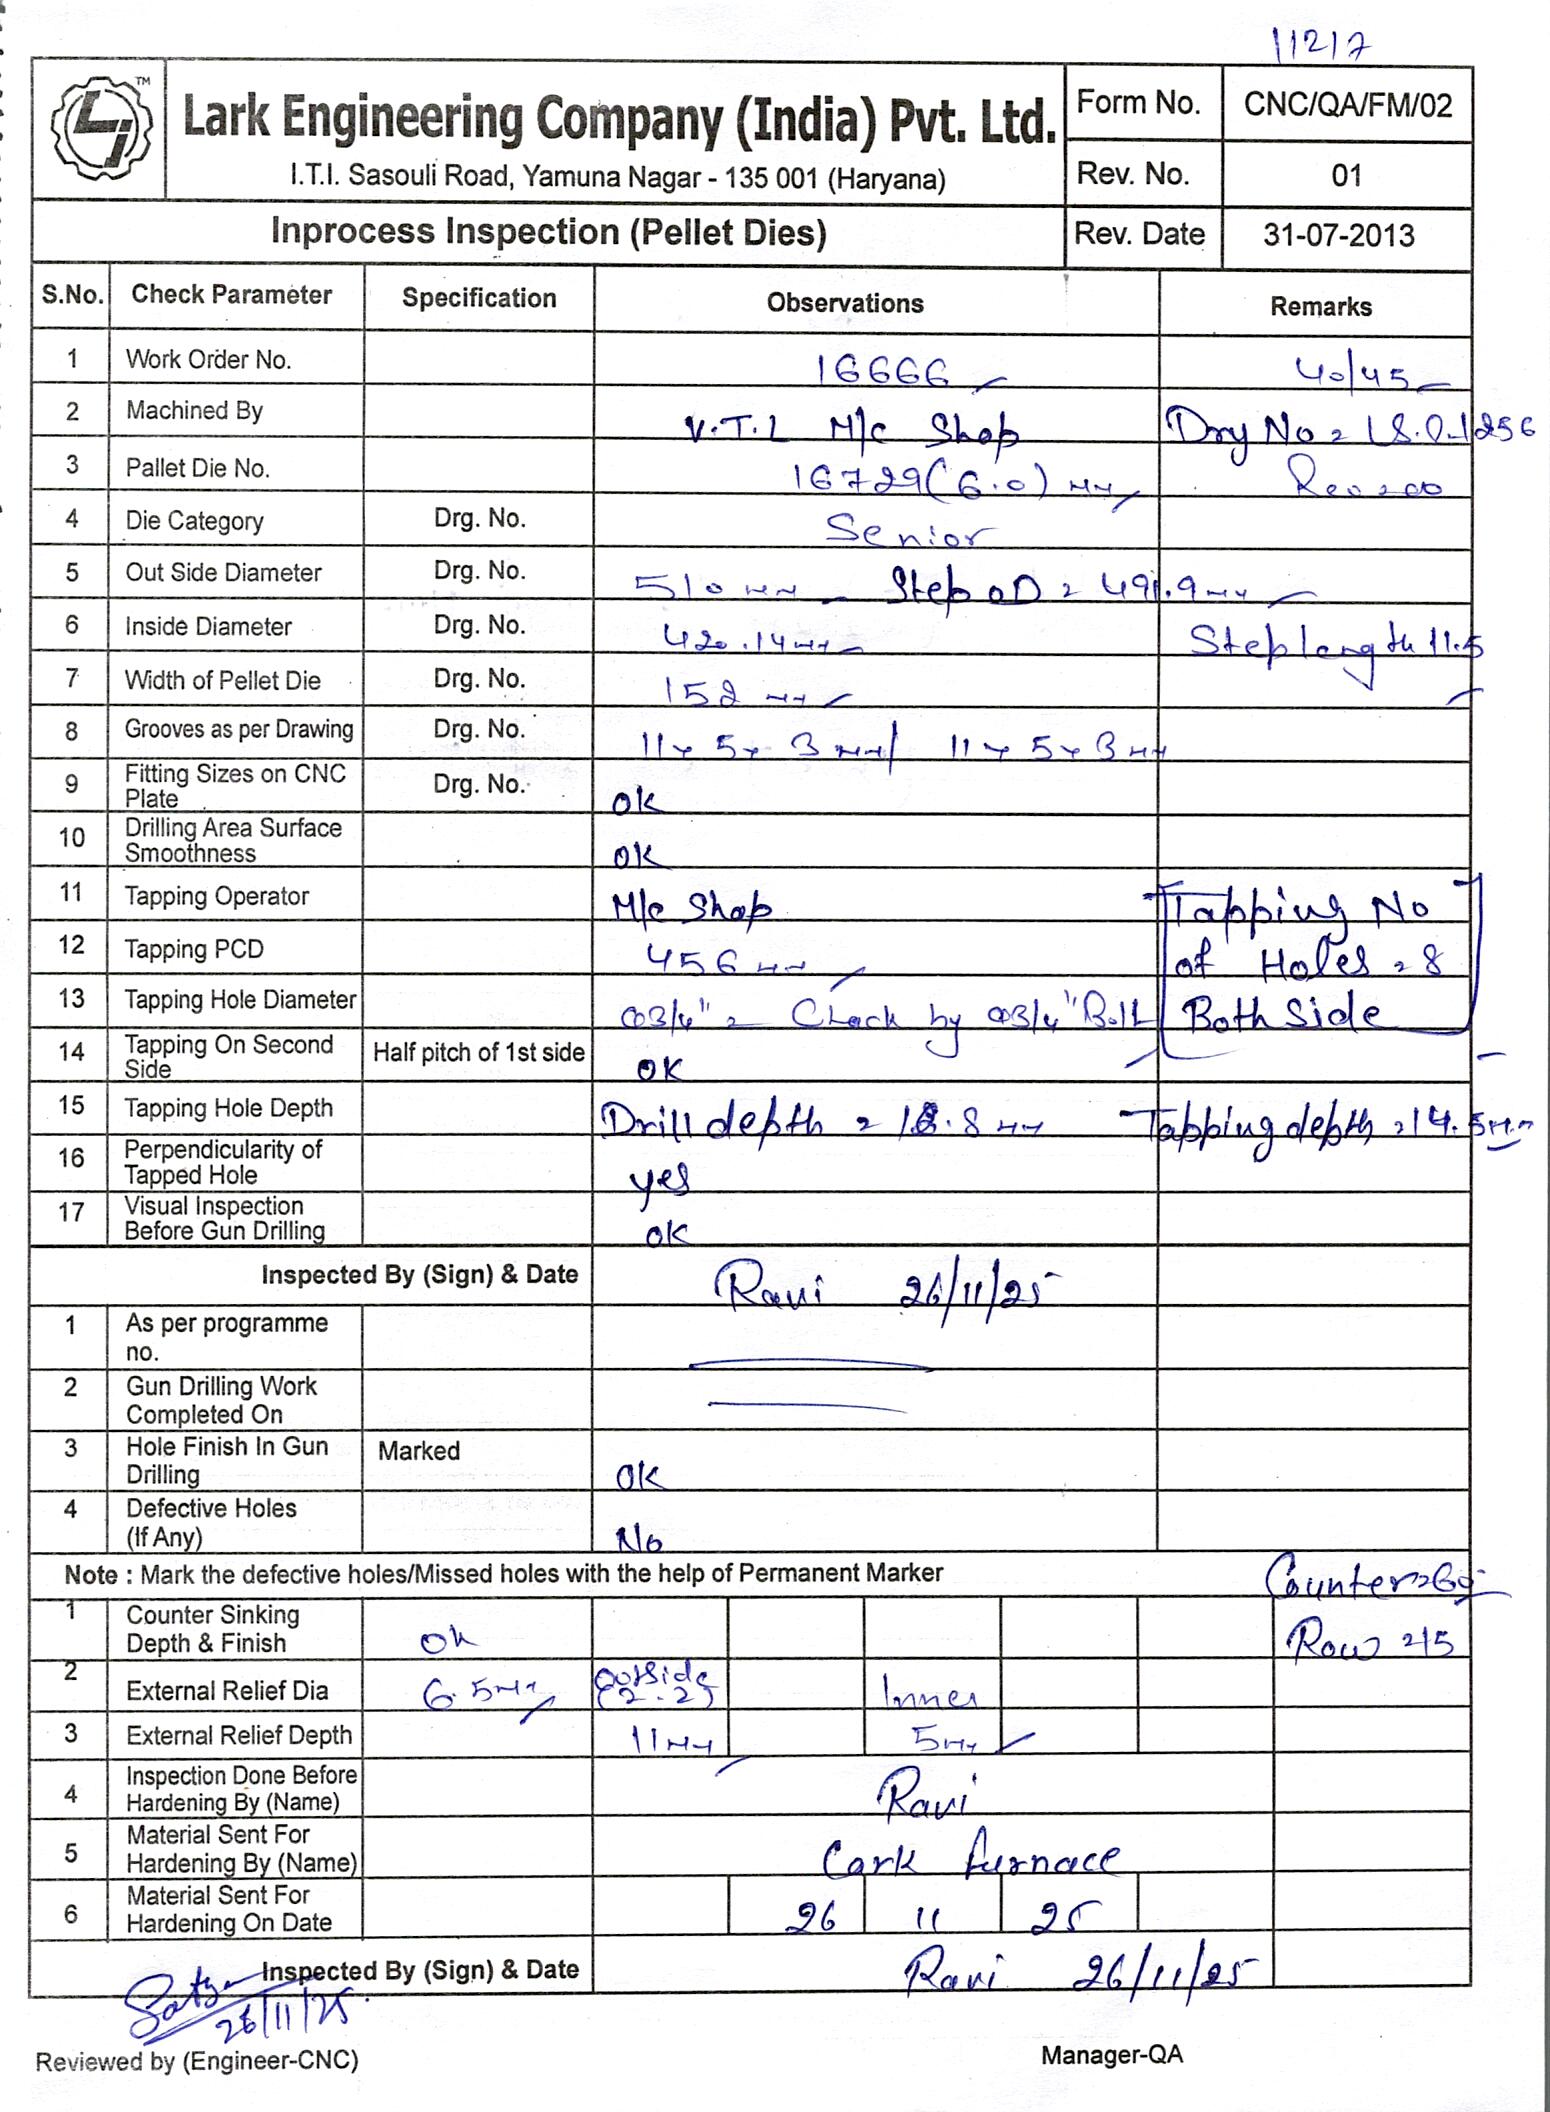 11217
TM
Lark Engineering Company (India) Pvt. Ltd.
I.T.I. Sasouli Road, Yamuna Nagar - 135 001 (Haryana)
Form No. CNC/QA/FM/02
Rev. No. 01
Inprocess Inspection (Pellet Dies) Rev. Date 31-07-2013
S.No. Check Parameter Specification Observations Remarks
1 Work Order No. 16666 40/45
2 Machined By V.T.L M/c Shop
3 Pallet Die No. 16729(6.0) mm Rev=00
4 Die Category Drg. No. Senior
5 Out Side Diameter Drg. No. 510 mm Step OD = 491.9 mm
6 Inside Diameter Drg. No. 420.14 mm Step length 11.5
7 Width of Pellet Die Drg. No. 152 mm
8 Grooves as per Drawing Drg. No. 11 x 5 x 3 mm / 11 x 5 x 3 mm
9 Fitting Sizes on CNC Plate Drg. No. OK
10 Drilling Area Surface Smoothness OK
11 Tapping Operator M/c Shop Tapping No
12 Tapping PCD 456 mm of Holes = 8
13 Tapping Hole Diameter 3/4" = Check by 3/4" Bolt Both Side
14 Tapping On Second Side Half pitch of 1st side OK
15 Tapping Hole Depth Drill depth = mm Tapping depth = 14.5 mm
16 Perpendicularity of Tapped Hole yes
17 Visual Inspection Before Gun Drilling OK
Inspected By (Sign) & Date Ravi 26/11/25
1 As per programme no.
2 Gun Drilling Work Completed On
3 Hole Finish In Gun Drilling Marked OK
4 Defective Holes (If Any) No
Note : Mark the defective holes/Missed holes with the help of Permanent Marker Counter=60°
1 Counter Sinking Depth & Finish Ok Row = 15
2 External Relief Dia 6.5 mm Outside (2-2) Inner
3 External Relief Depth 11 mm 5 mm
4 Inspection Done Before Hardening By (Name) Ravi
5 Material Sent For Hardening By (Name) Lark furnace
6 Material Sent For Hardening On Date 26 11 25
Inspected By (Sign) & Date Ravi 26/11/25
26/11/25
Reviewed by (Engineer-CNC) Manager-QA